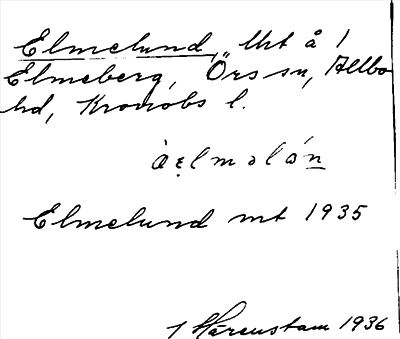 Elmelund, Uht å 1
Elmeberg, Örs sn, Allbo
hd, Kronobs l.
Elmelund mt 1935
J Härenstam 1936